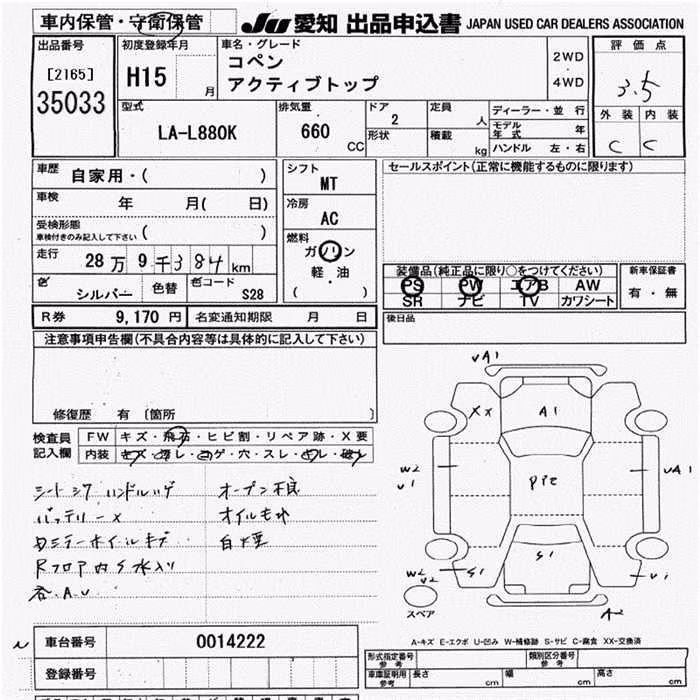 車内保管・守衛保管
JU 愛知 出品申込書 JAPAN USED CAR DEALERS ASSOCIATION
出品番号
[2165]
35033
初度登録年月
H15 月
車名・グレード
コペン
アクティブトップ
2WD
・
4WD
評価点
3.5
外装 内装
C C
型式
LA-L880K
排気量
660 CC
ドア
2
形状
定員
人
積載
kg
ディーラー・並行
モデル年式 年
ハンドル 左・右
車歴 自家用・( )
車検 年 月( 日)
受検形態
車検付きのみ記入して下さい ( )
走行 28万9千384km
色 シルバー 色替 色コード S28
シフト
MT
冷房
AC
燃料
ガソリン
軽・油
( )
セールスポイント(正常に機能するものに限ります)
装備品(純正品に限り○をつけてください)
PS PW エアB AW
SR ナビ TV カワシート
新車保証書
有・無
R券 9,170円 名変通知期限 月 日
後日品
注意事項申告欄(不具合内容等は具体的に記入して下さい)
修復歴 有〔箇所 〕
検査員記入欄
FW キズ・飛石・ヒビ割・リペア跡・X要
内装 キズ・汚レ・コゲ・穴・スレ・切レ・破レ
シートシワ ハンドルハゲ オープン不良
バッテリーX オイルモレ
タンテーホイルキズ 白煙
Rフロア内 水入り
各A.U
VA1
XX
A1
W2
V1
Pte
VA1
W2
V2
S1
S1
V1
A2
スペア
A-キズ E-エクボ U-凹み W-補修跡 S-サビ C-腐食 XX-交換済
車台番号 0014222
登録番号
形式指定番号
参考
類別区分番号
参考
車庫証明用
参考
長さ cm 幅 cm 高さ cm